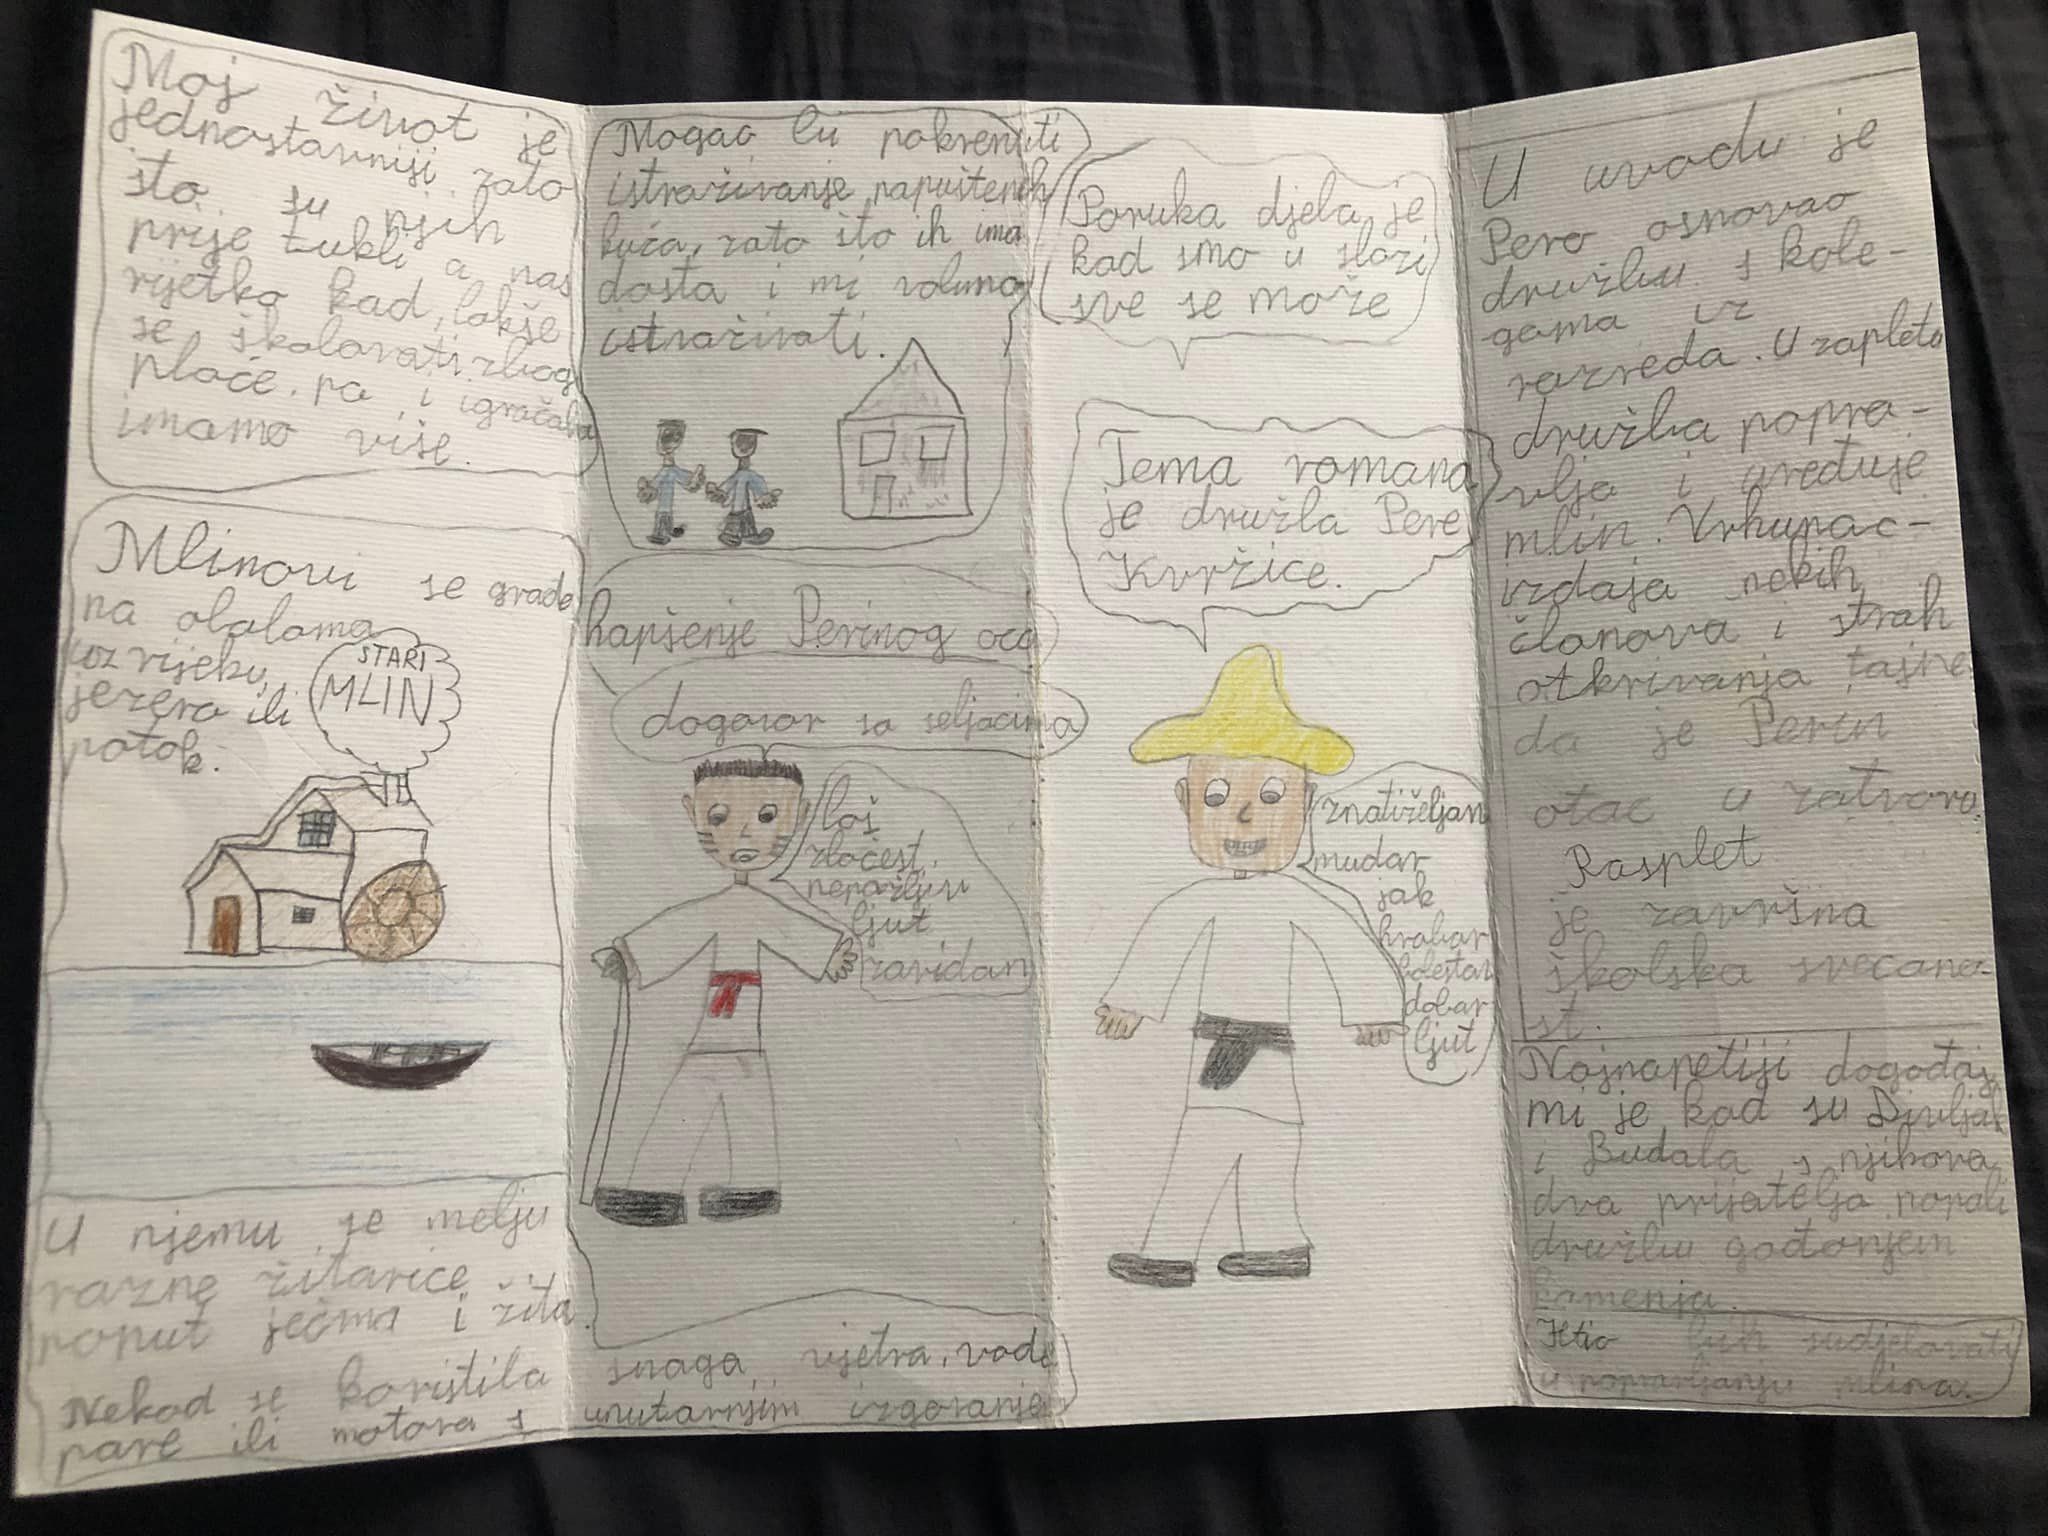 Moj život je
jednostavniji zato
što su njih
prije tukli, a nas
rijetko kad, lakše
se školovati zbog
plaće, pa i igračaka
imamo više.
Mlinovi se grade
na obalama
uz rijeku,
jezero ili
potok.
STARI
MLIN
U njemu se melju
razne žitarice
poput ječma i žita.
Nekad se koristila snaga vjetra, vode
pare ili motora s unutarnjim izgaranjem
Mogao bi pokrenuti
istraživanje napuštenih
kuća, zato što ih ima
dosta i mi volimo
istraživati.
hapšenje Perinog oca
dogovor sa seljacima
loš
zločest,
nepažljiv
ljut
zavidan
Poruka djela je
kad smo u slozi
sve se može
Tema romana
je družba Pere
Kvržice.
znatiželjan
mudar
jak
hrabar
dobar
ljut
U uvodu je
Pero osnovao
družbu s kole-
gama iz
razreda. U zapletu
družba popra-
vlja i uređuje
mlin. Vrhunac-
izdaja nekih
članova i strah
otkrivanja tajne
da je Perin
otac u zatvoru.
Rasplet
je završna
školska svečano-
st.
Najnapetiji događaj
mi je kad su Divljak
i Budala s njihova
dva prijatelja napali
družbu gađanjem
kamenja.
Htio bih sudjelovati
u popravljanju mlina.